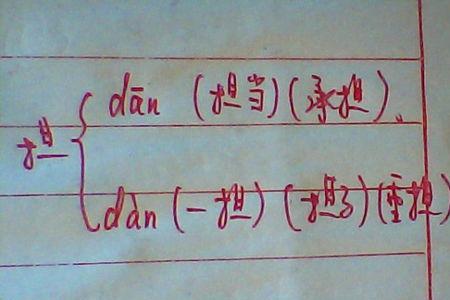 担
dān (担当)(承担)、
dàn (一担)(担子)(重担)